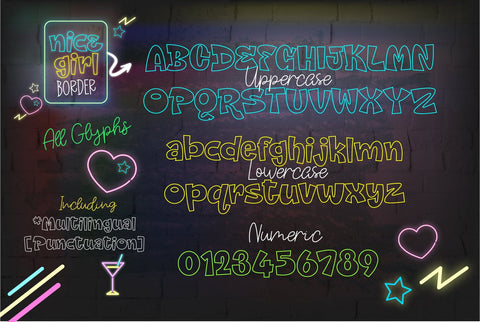 nice
girl
BORDER
All Glyphs
Including
*Multilingual
[Punctuation]
ABCDEFGHIJKLMN
Uppercase
OPQRSTUVWXYZ
abcdefghijklmn
Lowercase
opqrstuvwxyz
Numeric
0123456789